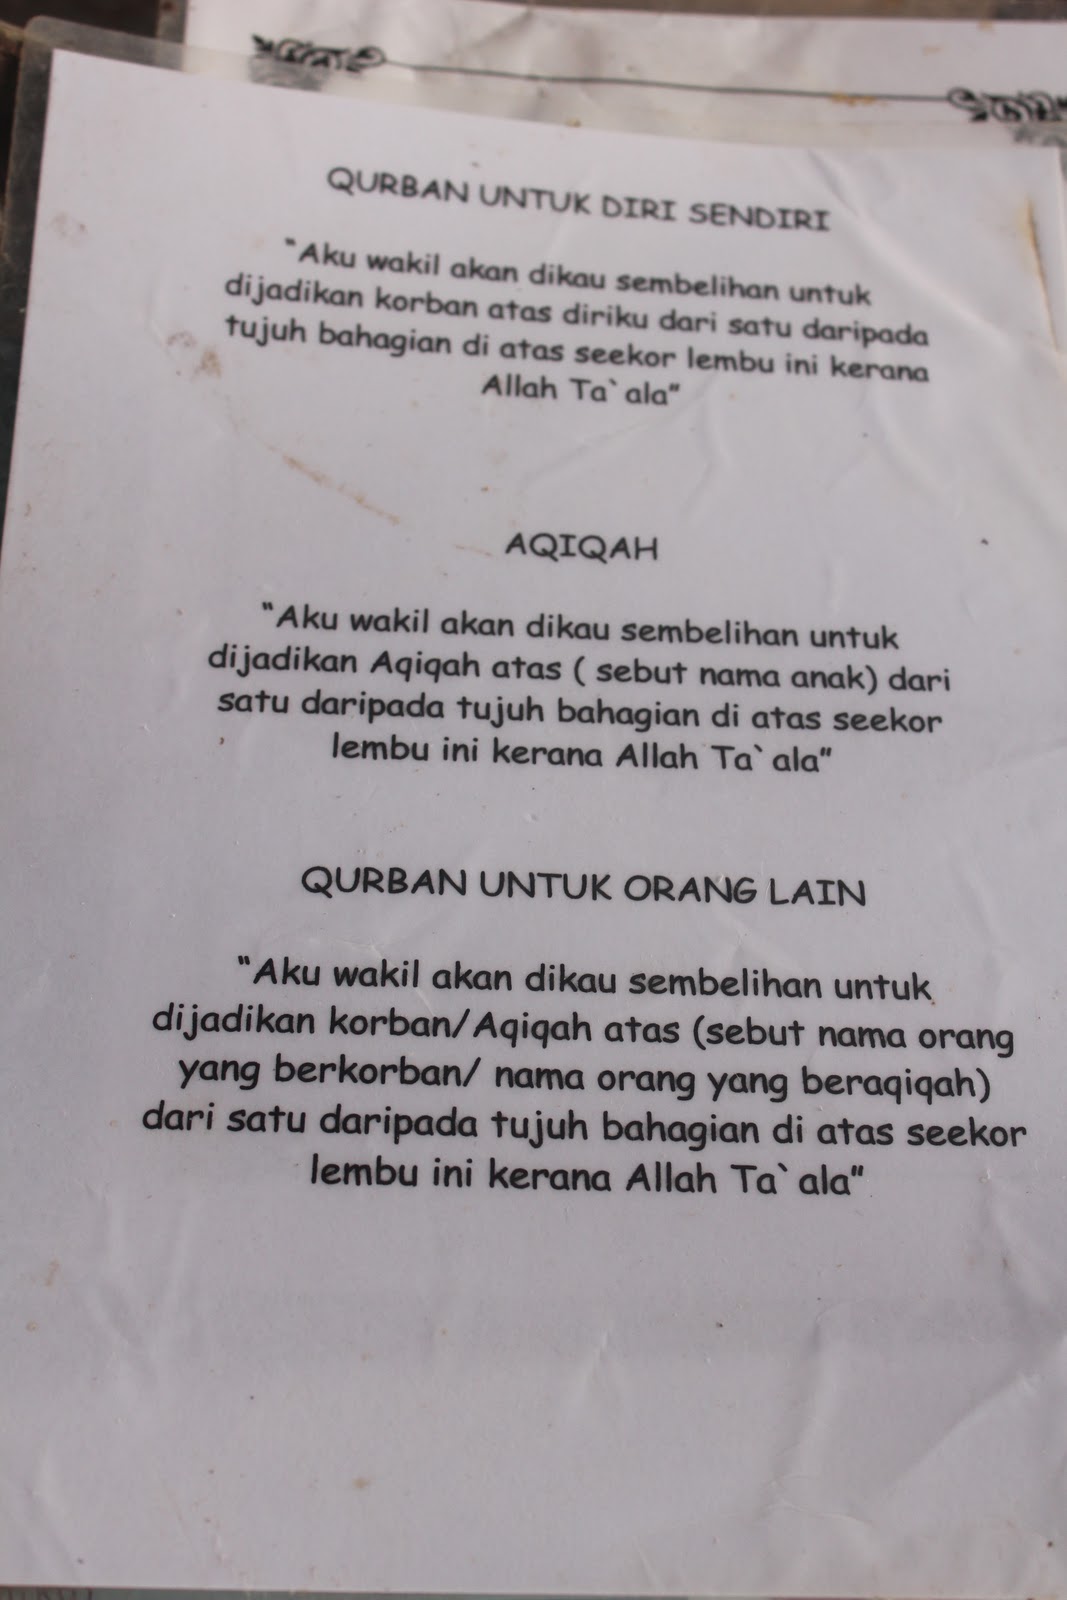 QURBAN UNTUK DIRI SENDIRI
"Aku wakil akan dikau sembelihan untuk
dijadikan korban atas diriku dari satu daripada
tujuh bahagian di atas seekor lembu ini kerana
Allah Ta`ala"
AQIQAH
"Aku wakil akan dikau sembelihan untuk
dijadikan Aqiqah atas ( sebut nama anak) dari
satu daripada tujuh bahagian di atas seekor
lembu ini kerana Allah Ta`ala"
QURBAN UNTUK ORANG LAIN
"Aku wakil akan dikau sembelihan untuk
dijadikan korban/Aqiqah atas (sebut nama orang
yang berkorban/ nama orang yang beraqiqah)
dari satu daripada tujuh bahagian di atas seekor
lembu ini kerana Allah Ta`ala"